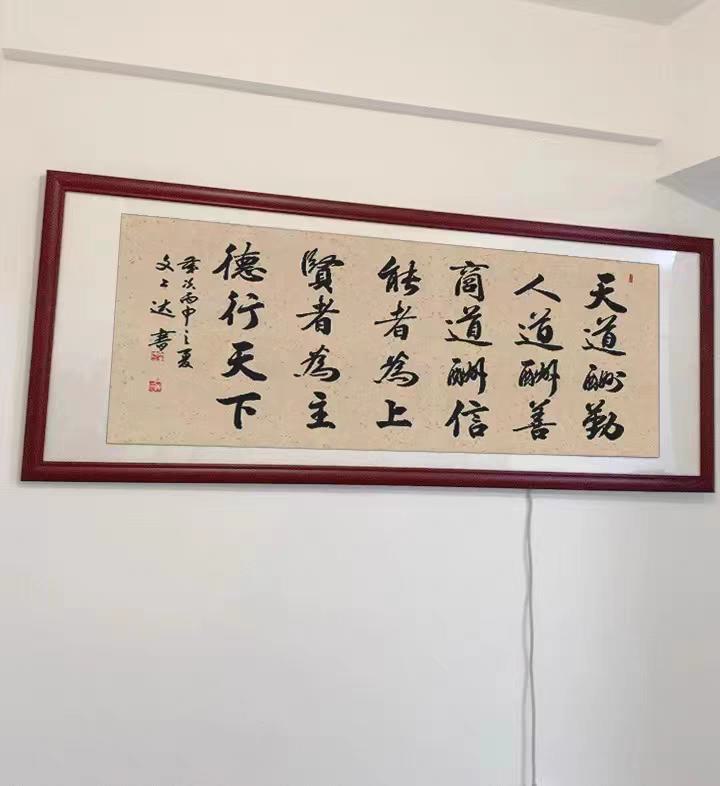 天道酬勤
人道酬善
商道酬信
能者為上
賢者為主
德行天下
歲次丙申之夏
文上达書